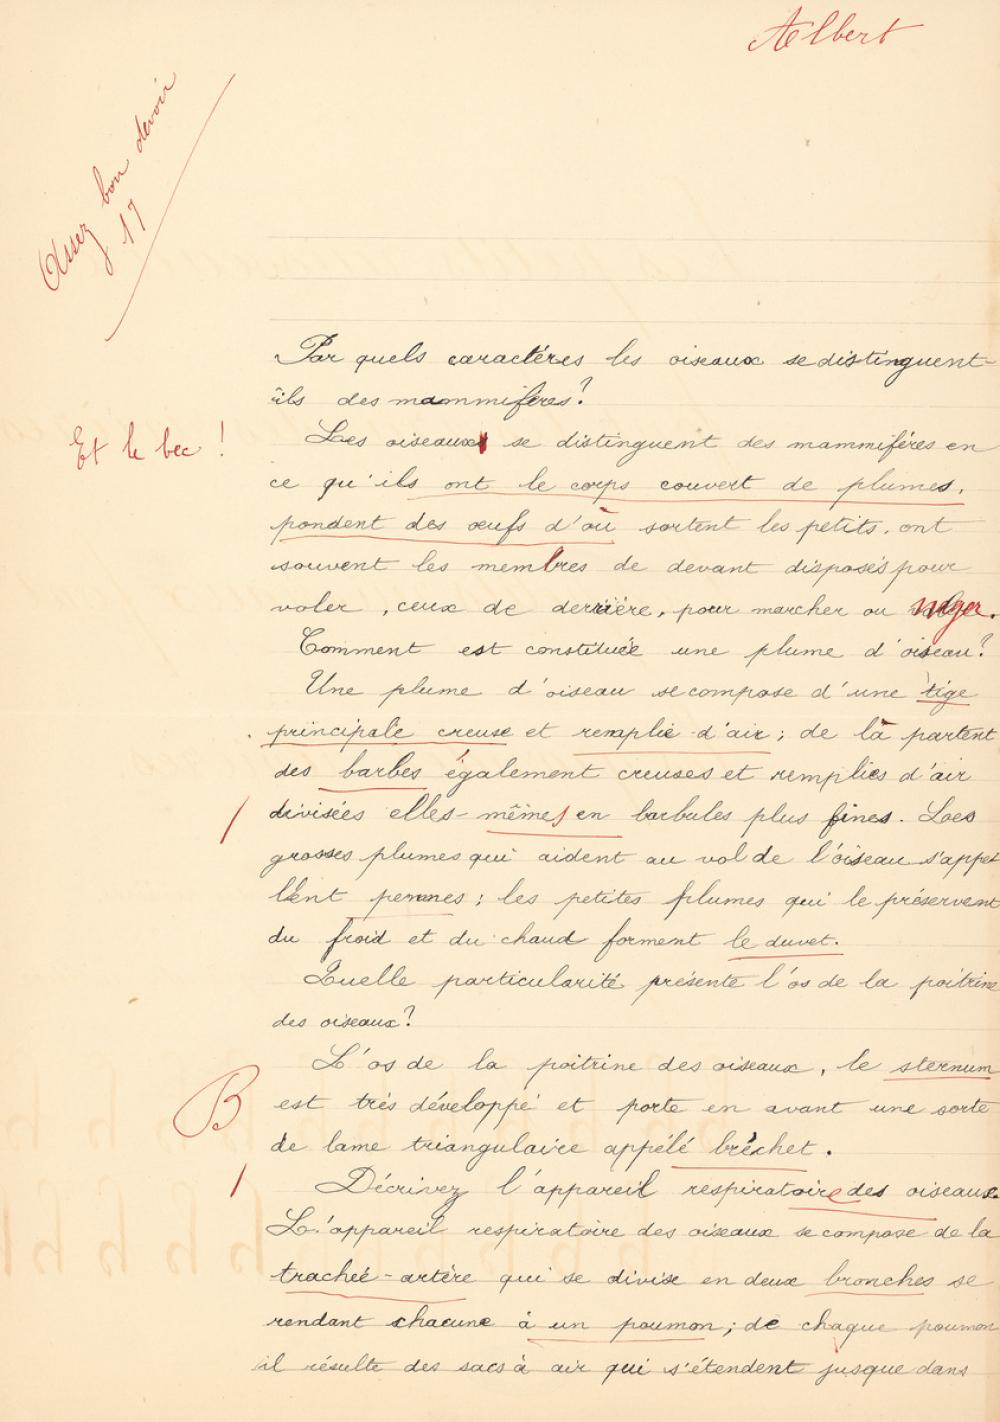 Albert
Assez bon devoir
17
Par quels caractères les oiseaux se distinguent-
ils des mammifères?
Et le bec !
Les oiseaux se distinguent des mammifères en
ce qu'ils ont le corps couvert de plumes,
pondent des œufs d'où sortent les petits, ont
souvent les membres de devant disposés pour
voler, ceux de derrière, pour marcher ou nager.
Comment est constituée une plume d'oiseau?
Une plume d'oiseau se compose d'une tige
principale creuse et remplie d'air; de là partent
des barbes également creuses et remplies d'air
divisées elles-mêmes en barbules plus fines. Les
grosses plumes qui aident au vol de l'oiseau s'appel
lent pennes; les petites plumes qui le préservent
du froid et du chaud forment le duvet.
Quelle particularité présente l'os de la poitrine
des oiseaux?
L'os de la poitrine des oiseaux, le sternum
B
est très développé et porte en avant une sorte
de lame triangulaire appélé bréchet.
Décrivez l'appareil respiratoire des oiseaux.
L'appareil respiratoire des oiseaux se compose de la
trachée-artère qui se divise en deux bronches se
rendant chacune à un poumon; de chaque poumon
il résulte des sacs à air qui s'étendent jusque dans